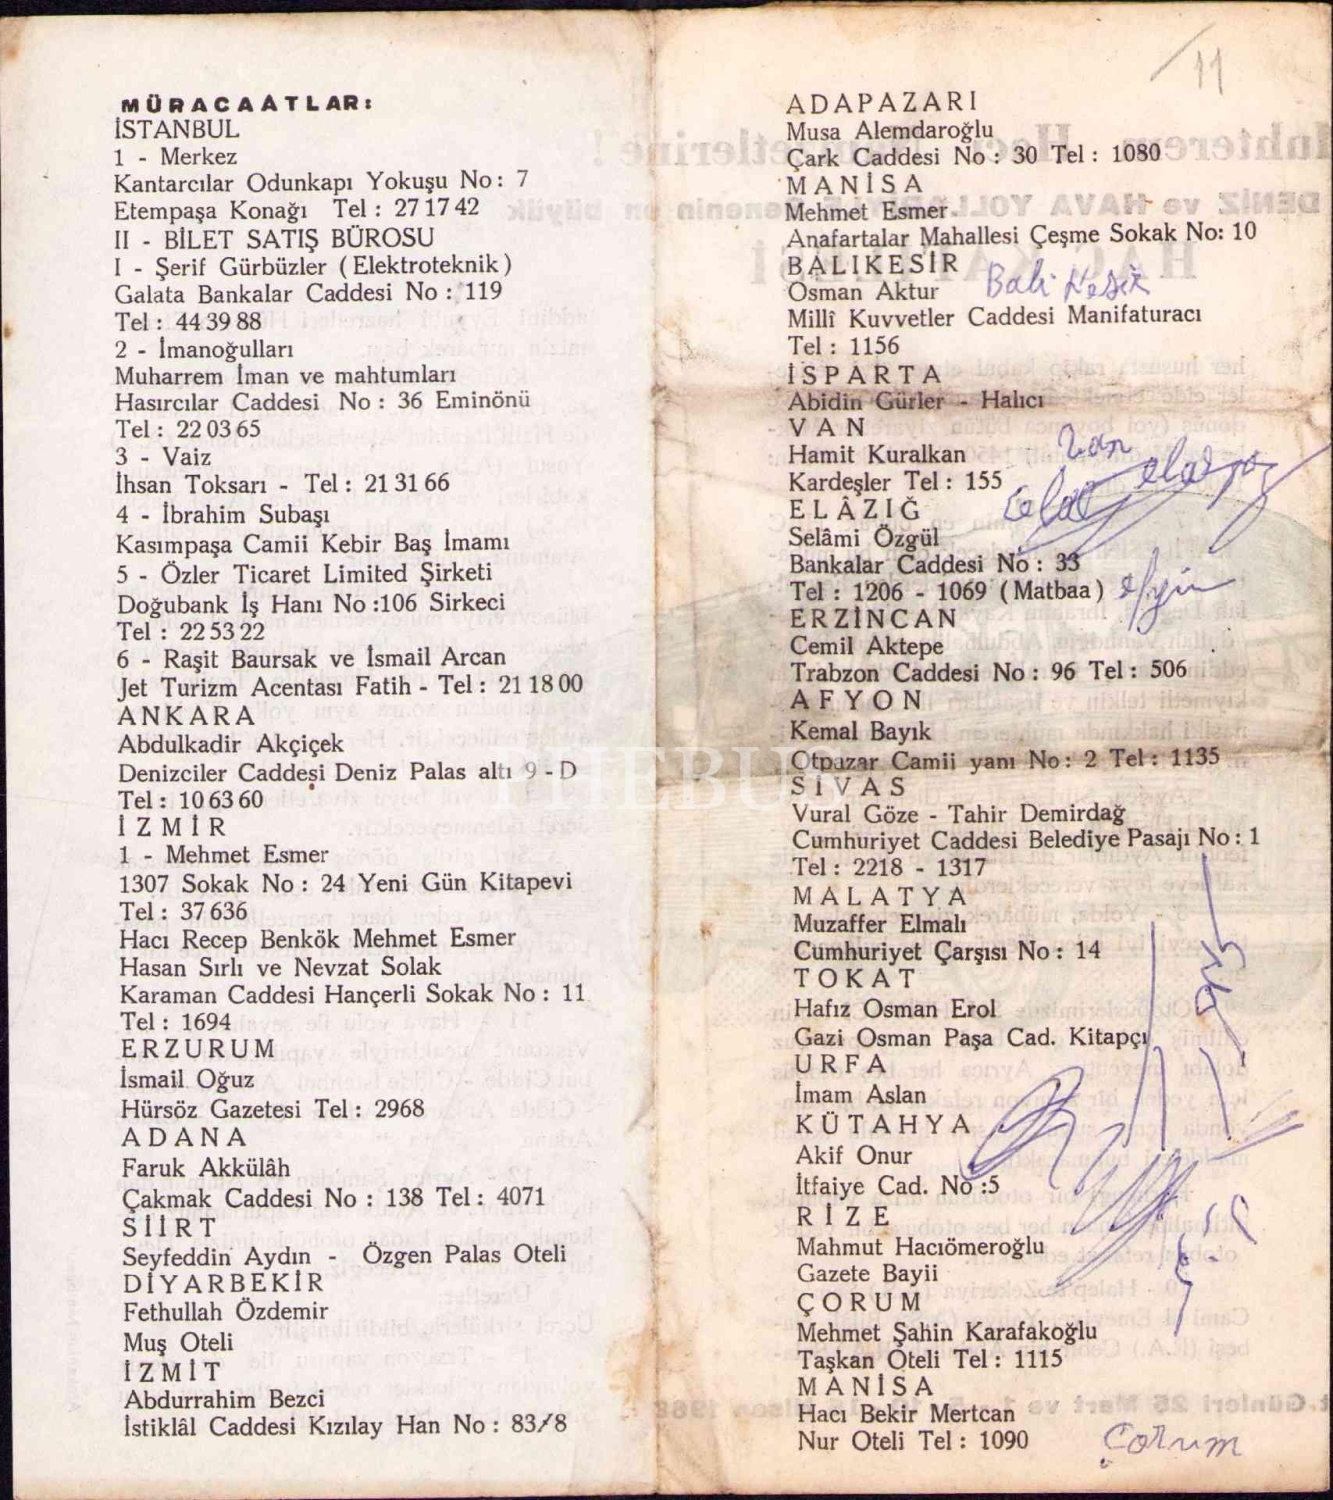 MÜRACAATLAR:
İSTANBUL
1 - Merkez
Kantarcılar Odunkapı Yokuşu No : 7
Etempaşa Konağı Tel : 27 17 42
II - BİLET SATIŞ BÜROSU
I - Şerif Gürbüzler ( Elektroteknik )
Galata Bankalar Caddesi No : 119
Tel : 44 39 88
2 - İmanoğulları
Muharrem İman ve mahtumları
Hasırcılar Caddesi No : 36 Eminönü
Tel : 22 03 65
3 - Vaiz
İhsan Toksarı - Tel : 21 31 66
4 - İbrahim Subaşı
Kasımpaşa Camii Kebir Baş İmamı
5 - Özler Ticaret Limited Şirketi
Doğubank İş Hanı No :106 Sirkeci
Tel : 22 53 22
6 - Raşit Baursak ve İsmail Arcan
Jet Turizm Acentası Fatih - Tel : 21 18 00
ANKARA
Abdulkadir Akçiçek
Denizciler Caddesi Deniz Palas altı 9 - D
Tel : 10 63 60
İZMİR
1 - Mehmet Esmer
1307 Sokak No : 24 Yeni Gün Kitapevi
Tel : 37 636
Hacı Recep Benkök Mehmet Esmer
Hasan Sırlı ve Nevzat Solak
Karaman Caddesi Hançerli Sokak No : 11
Tel : 1694
ERZURUM
İsmail Oğuz
Hürsöz Gazetesi Tel : 2968
ADANA
Faruk Akkülâh
Çakmak Caddesi No : 138 Tel : 4071
SİİRT
Seyfeddin Aydın - Özgen Palas Oteli
DİYARBEKİR
Fethullah Özdemir
Muş Oteli
İZMİT
Abdurrahim Bezci
İstiklâl Caddesi Kızılay Han No : 83/8
11
ADAPAZARI
Musa Alemdaroğlu
Çark Caddesi No : 30 Tel : 1080
MANİSA
Mehmet Esmer
Anafartalar Mahallesi Çeşme Sokak No: 10
BALIKESİR
Osman Aktur
Millî Kuvvetler Caddesi Manifaturacı
Tel : 1156
İSPARTA
Abidin Gürler - Halıcı
VAN
Hamit Kuralkan
Kardeşler Tel : 155
ELÂZIĞ
Selâmi Özgül
Bankalar Caddesi No : 33
Tel : 1206 - 1069 ( Matbaa )
ERZİNCAN
Cemil Aktepe
Trabzon Caddesi No : 96 Tel : 506
AFYON
Kemal Bayık
Otpazar Camii yanı No : 2 Tel : 1135
SİVAS
Vural Göze - Tahir Demirdağ
Cumhuriyet Caddesi Belediye Pasajı No : 1
Tel : 2218 - 1317
MALATYA
Muzaffer Elmalı
Cumhuriyet Çarşısı No : 14
TOKAT
Hafız Osman Erol
Gazi Osman Paşa Cad. Kitapçı
URFA
İmam Aslan
KÜTAHYA
Akif Onur
İtfaiye Cad. No :5
RİZE
Mahmut Hacıömeroğlu
Gazete Bayii
ÇORUM
Mehmet Şahin Karafakoğlu
Taşkan Oteli Tel : 1115
MANİSA
Hacı Bekir Mertcan
Nur Oteli Tel : 1090
Çorum
PHEBUS